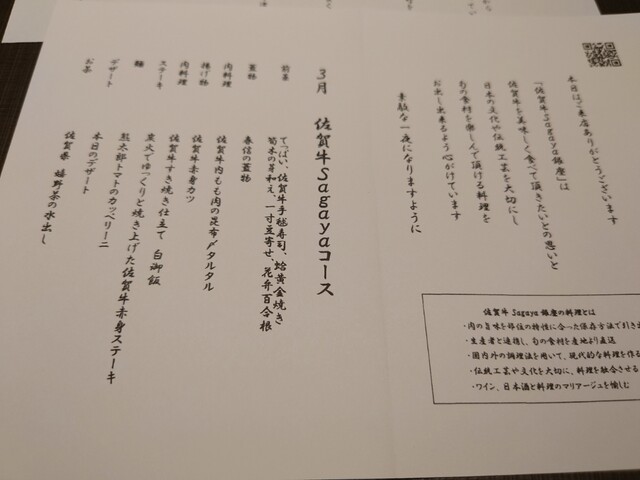 本日はご来店ありがとうございます
「佐賀牛Sagaya銀座」は
佐賀牛を美味しく食べて頂きたいとの思いと
日本の文化や伝統工芸を大切にし
旬の食材を楽しんで頂ける料理を
お出し出来るよう心がけています
素敵な一夜になりますように
佐賀牛 Sagaya 銀座の料理とは
・肉の旨味を部位の特性に合った保存方法で引き出
・生産者と連携し、旬の食材を産地より直送
・国内外の調理法を用いて、現代的な料理を作る
・伝統工芸や文化を大切に、料理を融合させる
・ワイン、日本酒と料理のマリアージュを愉しむ
3月 佐賀牛Sagayaコース
前菜 てっぱい、佐賀牛手毬寿司、蛤黄金焼き
筍木の芽和え、一寸豆寄せ、花弁百合根
蓋物 春信の蓋物
肉料理 佐賀牛内もも肉の昆布〆タルタル
揚げ物 佐賀牛赤身カツ
肉料理 佐賀牛すき焼き仕立て 白御飯
ステーキ 炭火でゆっくりと焼き上げた佐賀牛赤身ステーキ
麺 熊太郎トマトのカッペリーニ
デザート 本日のデザート
お茶 佐賀県 嬉野茶の水出し